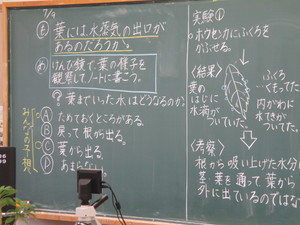 7/9
も 葉には水蒸気の出口が
あるのだろうか。
め けんび鏡で、葉の様子を
観察して、ノートに書こう。
? 葉までいった水はどうなるのか。
みんなの予想
A ためておくところがある。
B 戻って根から出る。
C 葉から出る。
D あまらない。
実験①
・ホウセンカにふくろを
かぶせる。
〈結果〉
葉のはじに水滴がついていた。
ふくろ
くもってた
内がわに
水てきが
ついてた。
〈考察〉
根から吸い上げた水分は
茎、葉を通って葉から
外に出ているのではな